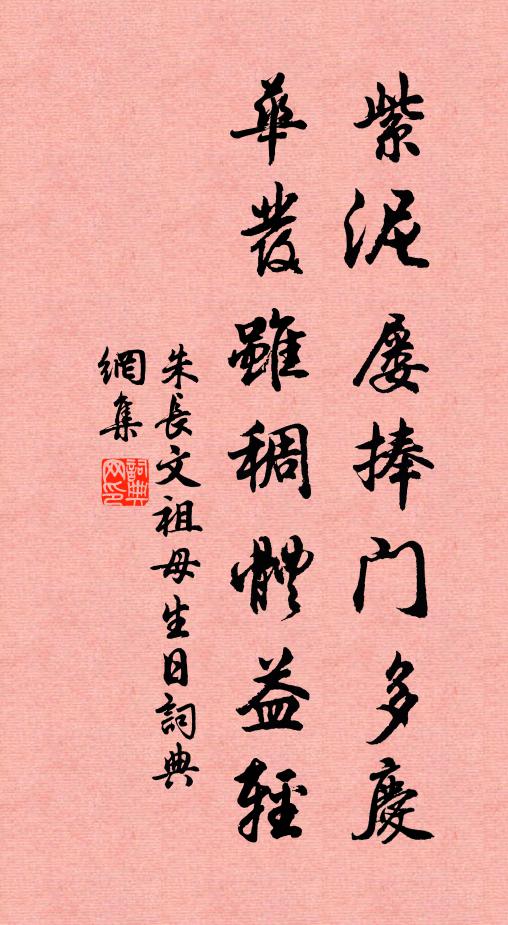 紫泥屡捧门多慶
華发雖稠體益輕
朱長文祖母生日詞典
網集
詞典网印